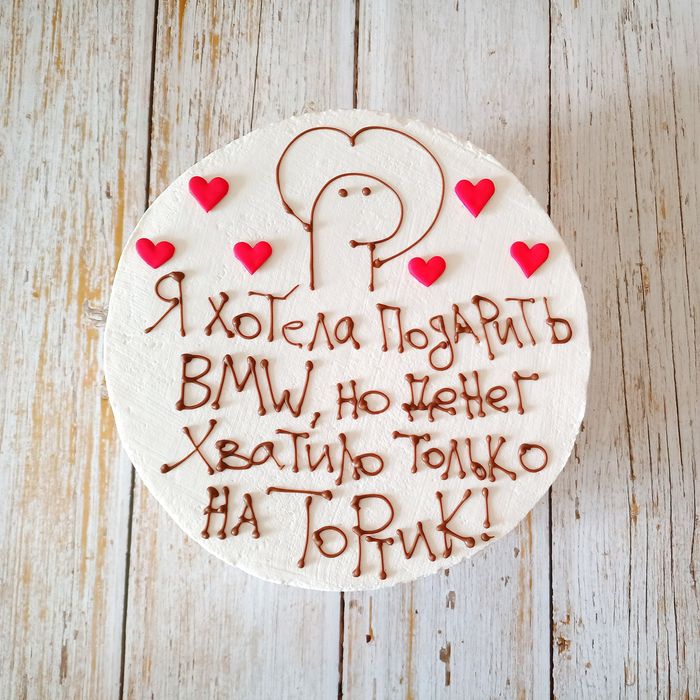 Я хотела подарить
BMW, но денег
хватило только
на тортик!